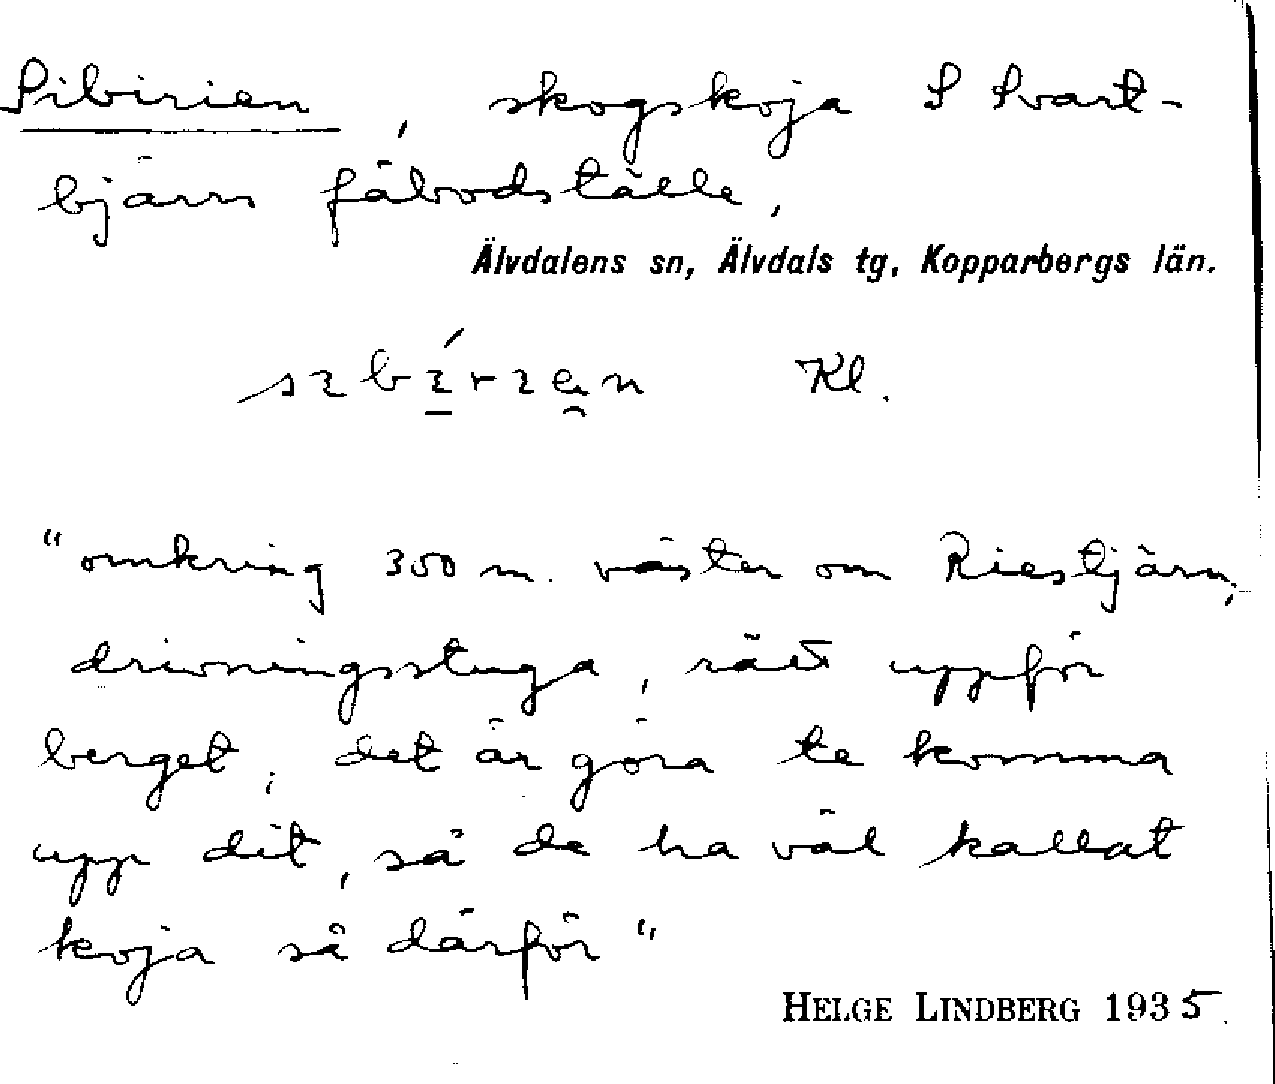 Sibirien, skogskoja S Svart-
bjärn fäbodställe,
Älvdalens sn, Älvdals tg, Kopparbergs län.
Kl.
"omkring 300 m. väster om Riestjärn,
drivningsstuga, rätt uppför
berget, det är göra te komma
upp dit, så de ha väl kallat
koja så därför"
HELGE LINDBERG 1935.